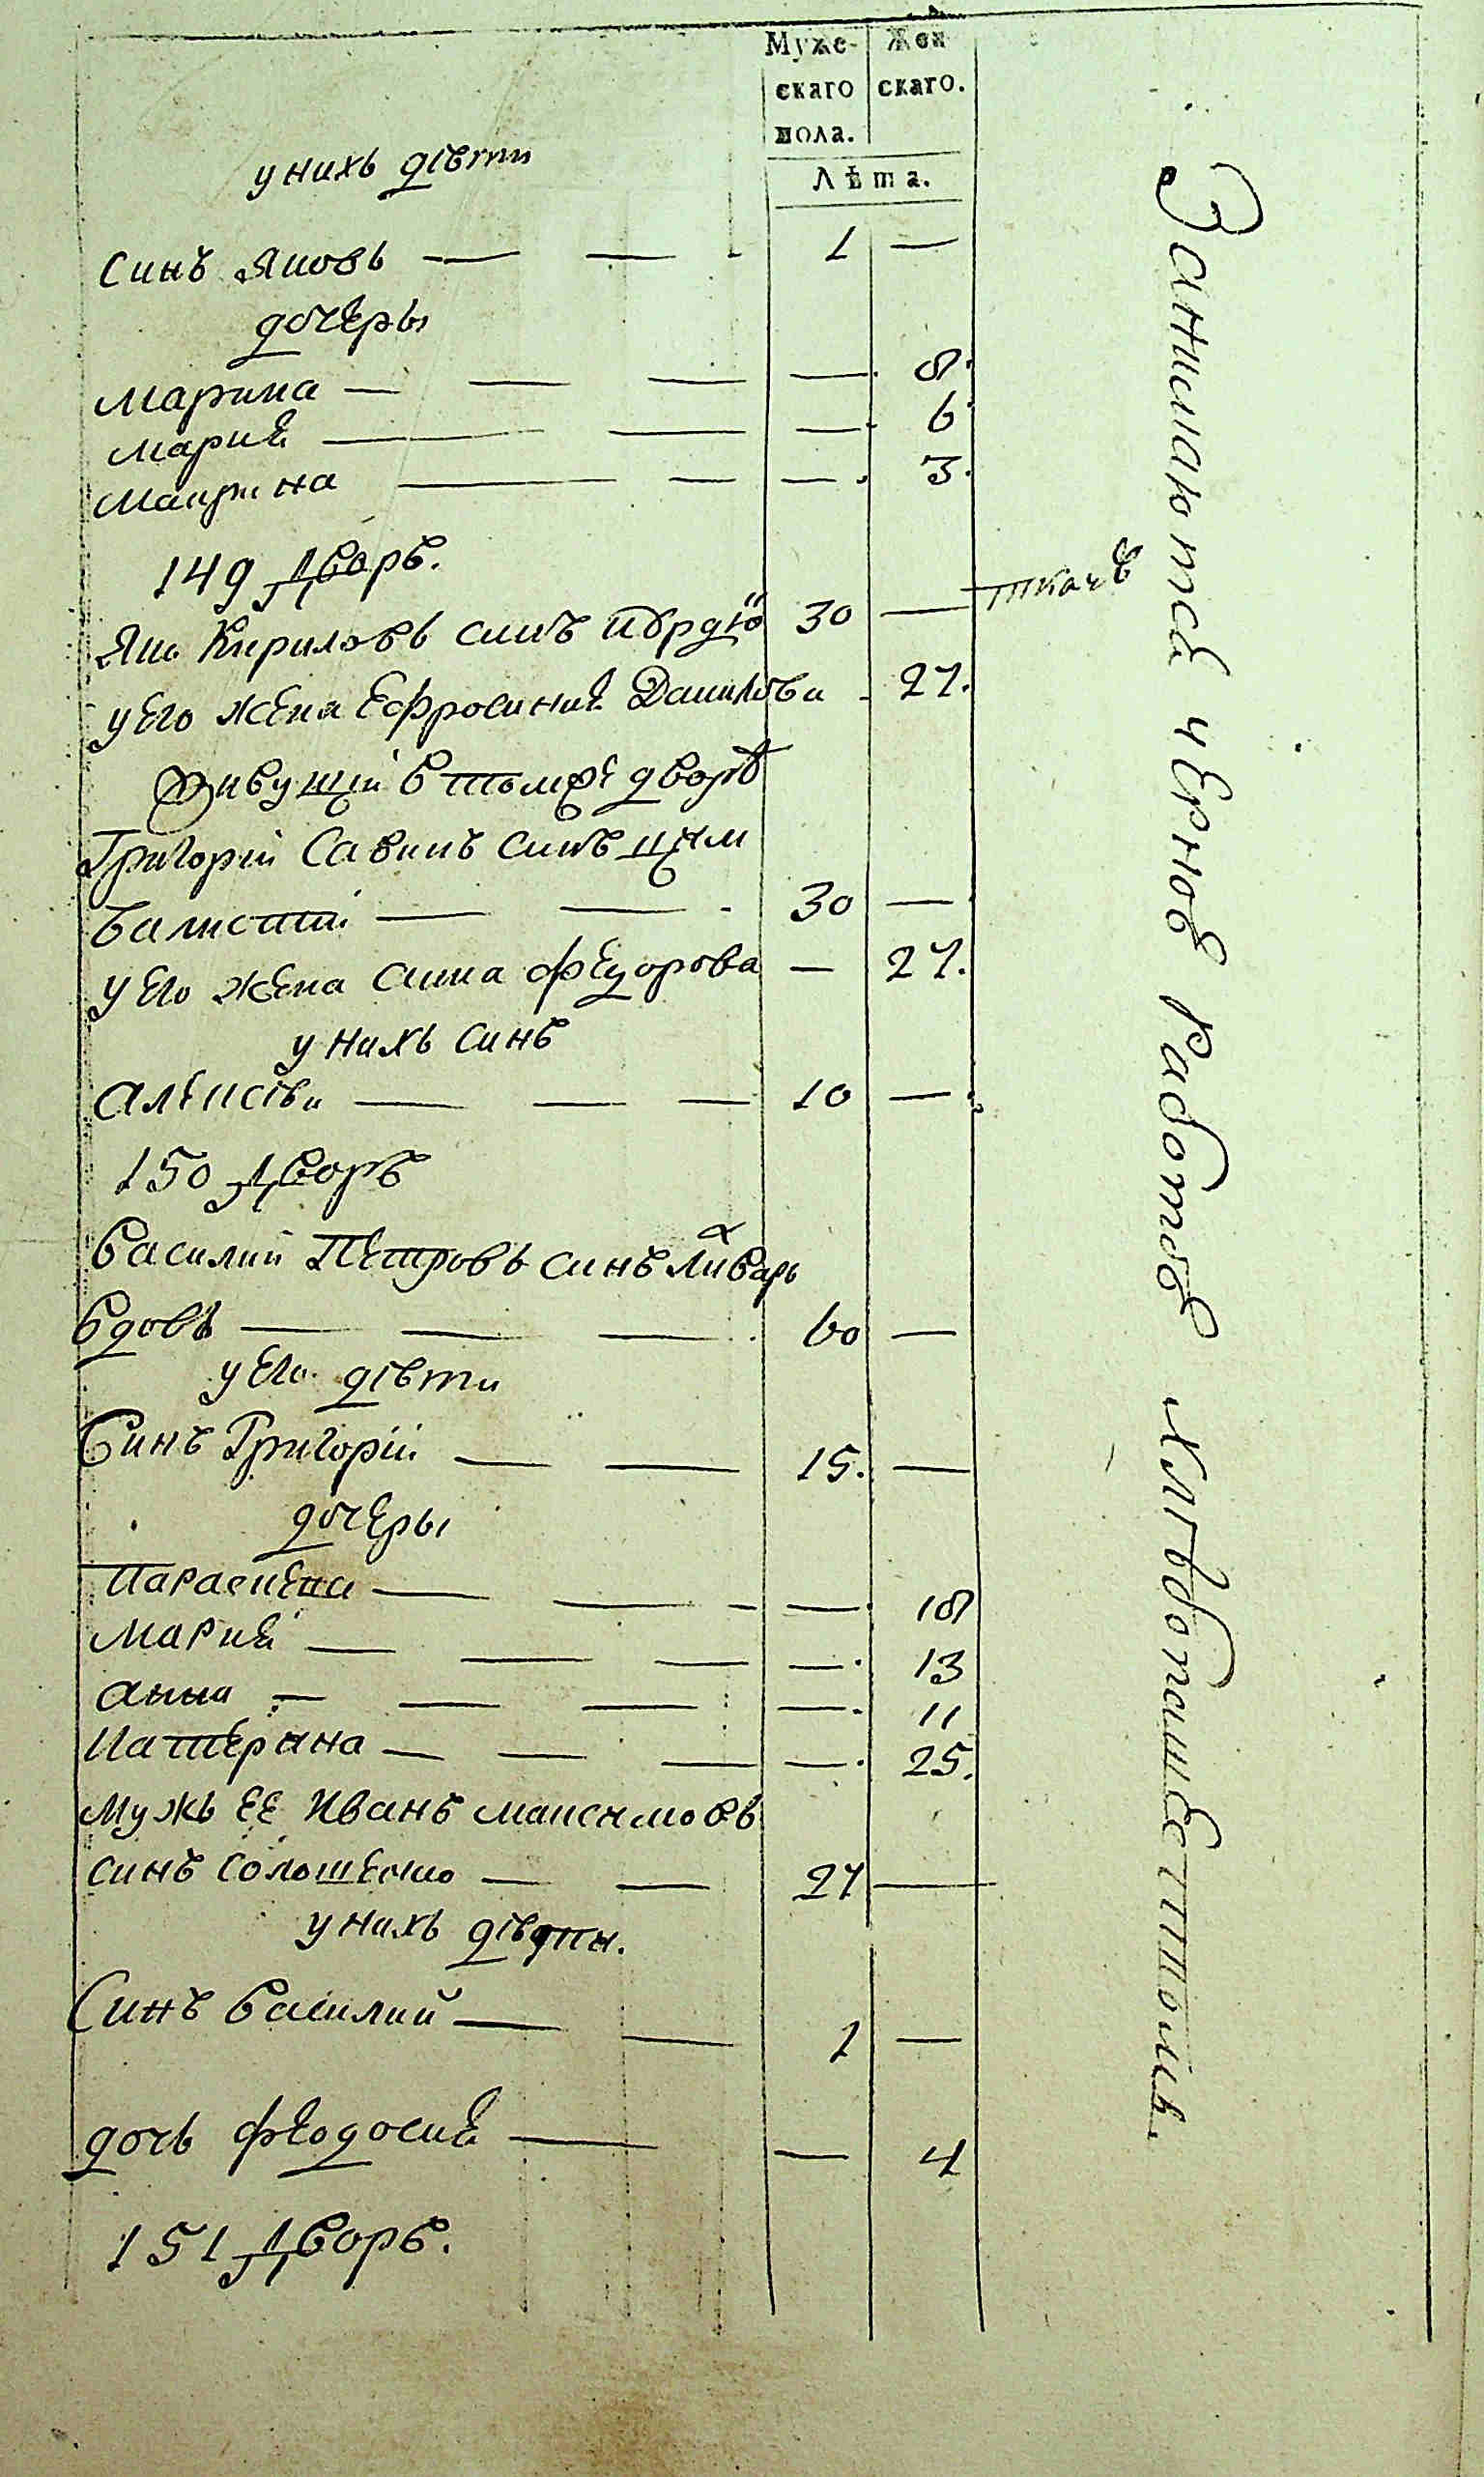 Муже- Жен
скаго скаго.
пола.
Лѣта.
у нихъ дѣти
синъ Яковъ — — - 1 —
дочеры
Марина — — — — 8.
Мария — — — 6.
Маврина — — — 3.
149 Дворъ.
Яковъ Кириловъ синъ 30 — ткачъ
у его жена Ефросиния Данилова - 27.
Живущій в томже дворѣ
Григорій Савинъ синъ Цым
балистий — — - 30 —
у его жена Анна Феодорова — 27.
у нихъ синъ
Алексѣй — — — 10 —
150 Дворъ
Василий Петровъ синъ Ликарь
вдовъ — — — 60 —
у его дѣти
Синъ Григорій — — 15. —
дочеры
Параскева — — - — 18
Мария — — — — 13
Анна — — — — 11
Катерина — — — — 25.
мужъ ее Иванъ Максимовъ
синъ Солошенко — — 27 —
у нихъ дѣти.
Синъ Василий — — 1 —
дочь Феодосия — — 4
151 Дворъ.
Занимаются черною работою хлѣбопашествомъ.